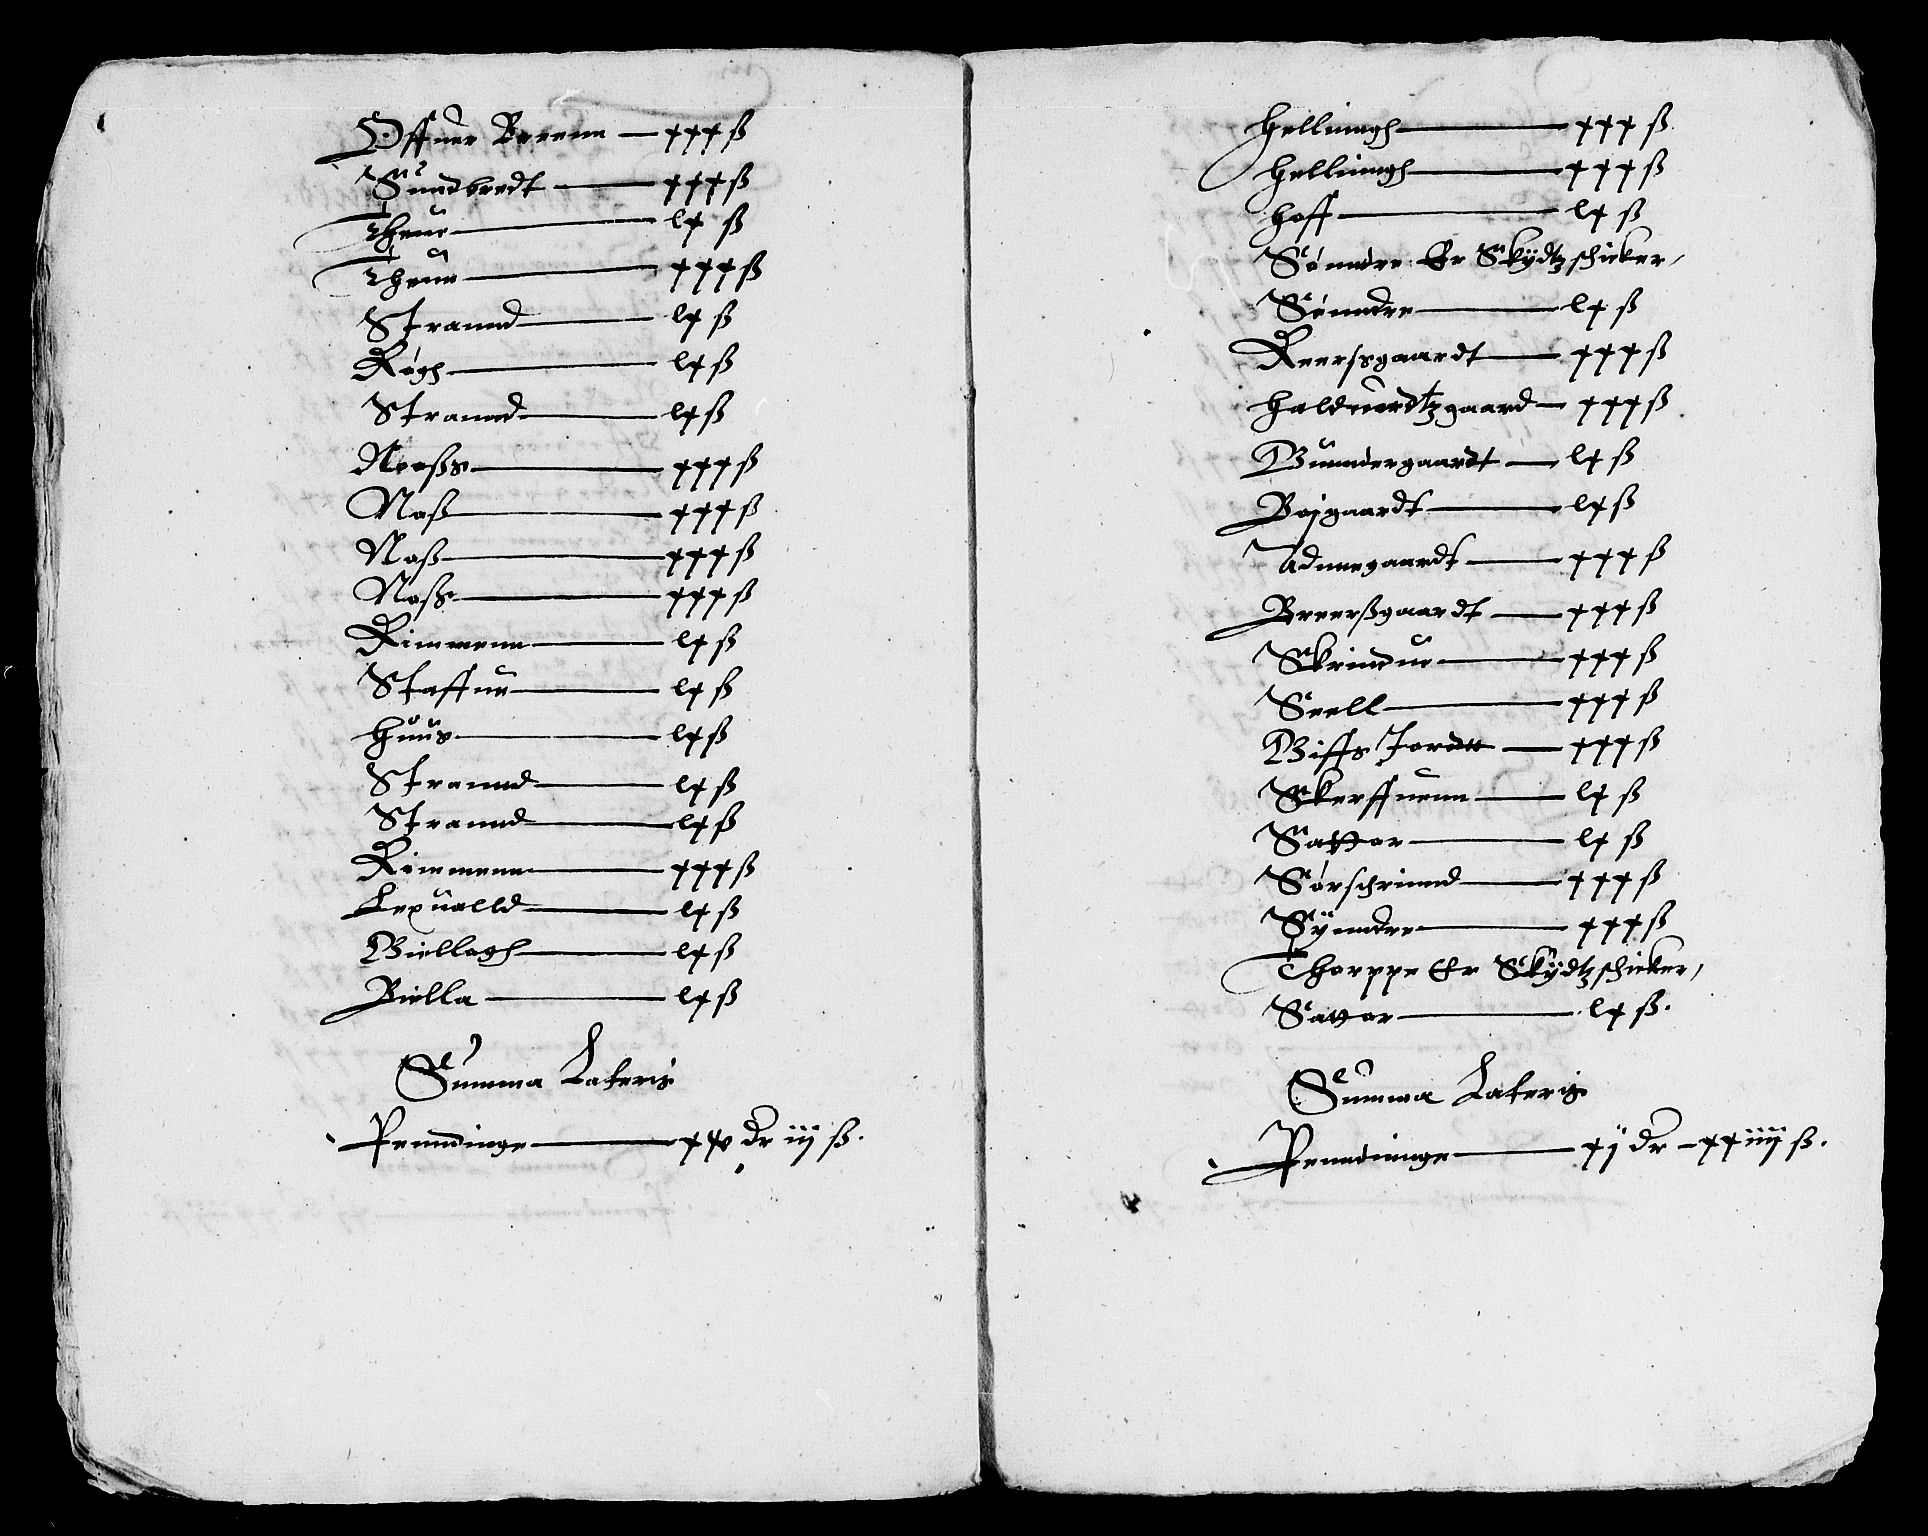 Offuer Breenn — xxx ß
Sundbredt — xxx ß
Theue — lx ß
Theun — xxx ß
Strannd — lx ß
Røgh — lx ß
Strannd — lx ß
Neeßs — xxx ß
Neß — xxx ß
Neß — xxx ß
Neßs — xxx ß
Rimmenn — lx ß
Staffun — lx ß
Huus — lx ß
Strannd — lx ß
Strannd — lx ß
Rimmenn — xxx ß
Lexualld — lx ß
Biellagh — lx ß
Biella — lx ß
Summa Lateris
Penndinge — xxv dr iij ß.
Hellinngh — xxx ß
Hellinngh — xxx ß
Hoff — lx ß
Sønndre Er Skÿdtzschicker,
Sønndre — lx ß
Reersgaardt — xxx ß
Halduordtzgaard — xxx ß
Gunndergaardt — lx ß
Bojgaardt — lx ß
Adnnegaardt — xxx ß
Breerßgaardt — xxx ß
Skrindue — xxx ß
Seell — xxx ß
Giffs Jordtt — xxx ß
Skerffuenn — lx ß
Satter — lx ß
Sørschrinnd — xxx ß
Sÿnndre — xxx ß
Thorppe Er Skÿdtzschicker,
Satter — lx ß.
Summa Lateris
Penndinnge — xij dr – xxiiij ß.